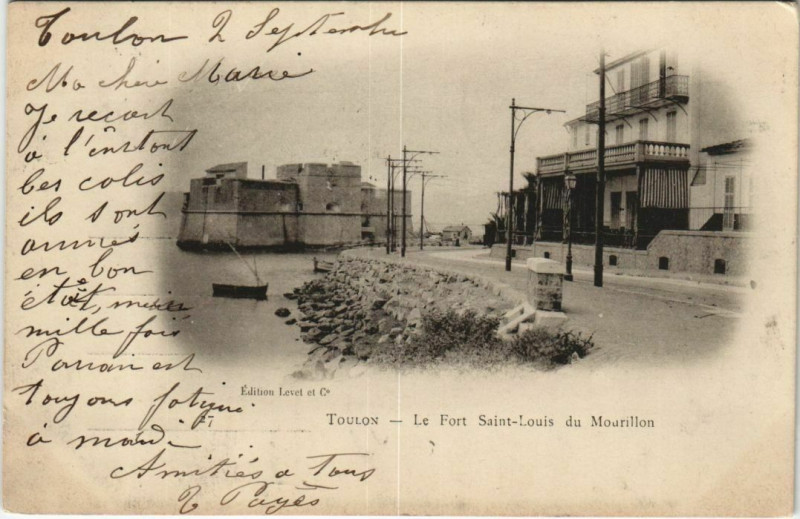 Toulon 2 Septembre
Ma chère Marie
Je recoit
à l'instant
les colis
ils sont
arrivés
en bon
état, merci
mille fois
Parrain est
toujours fatigué
à mardi
Amitiés a tous
Pagès
Édition Levet et Cie
27
TOULON — Le Fort Saint-Louis du Mourillon